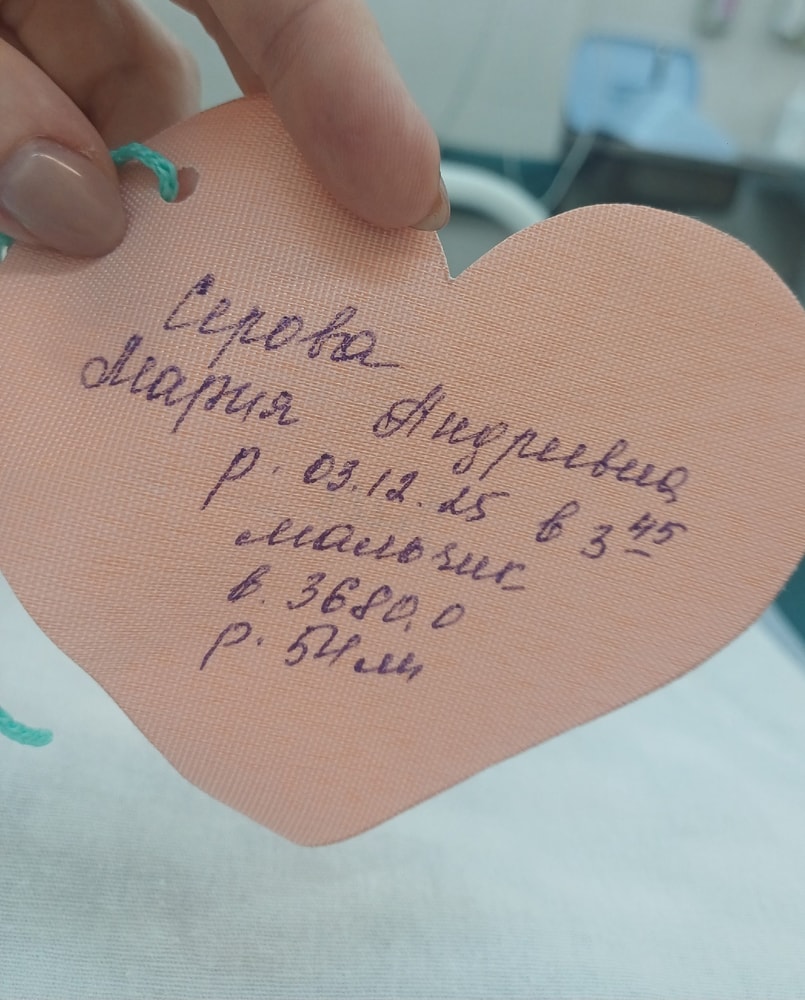 Серова
Мария Андреевна
р. 03.12.25 в 3 45
мальчик
в. 3680,0
р. 54см